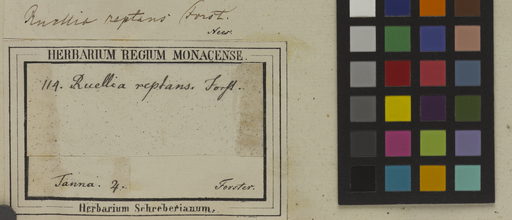 Ruellia reptans Forst.
Nees.
HERBARIUM REGIUM MONACENSE.
114. Ruellia reptans. Forst.
Tanna. 4. Forster.
Herbarium Schreberianum.